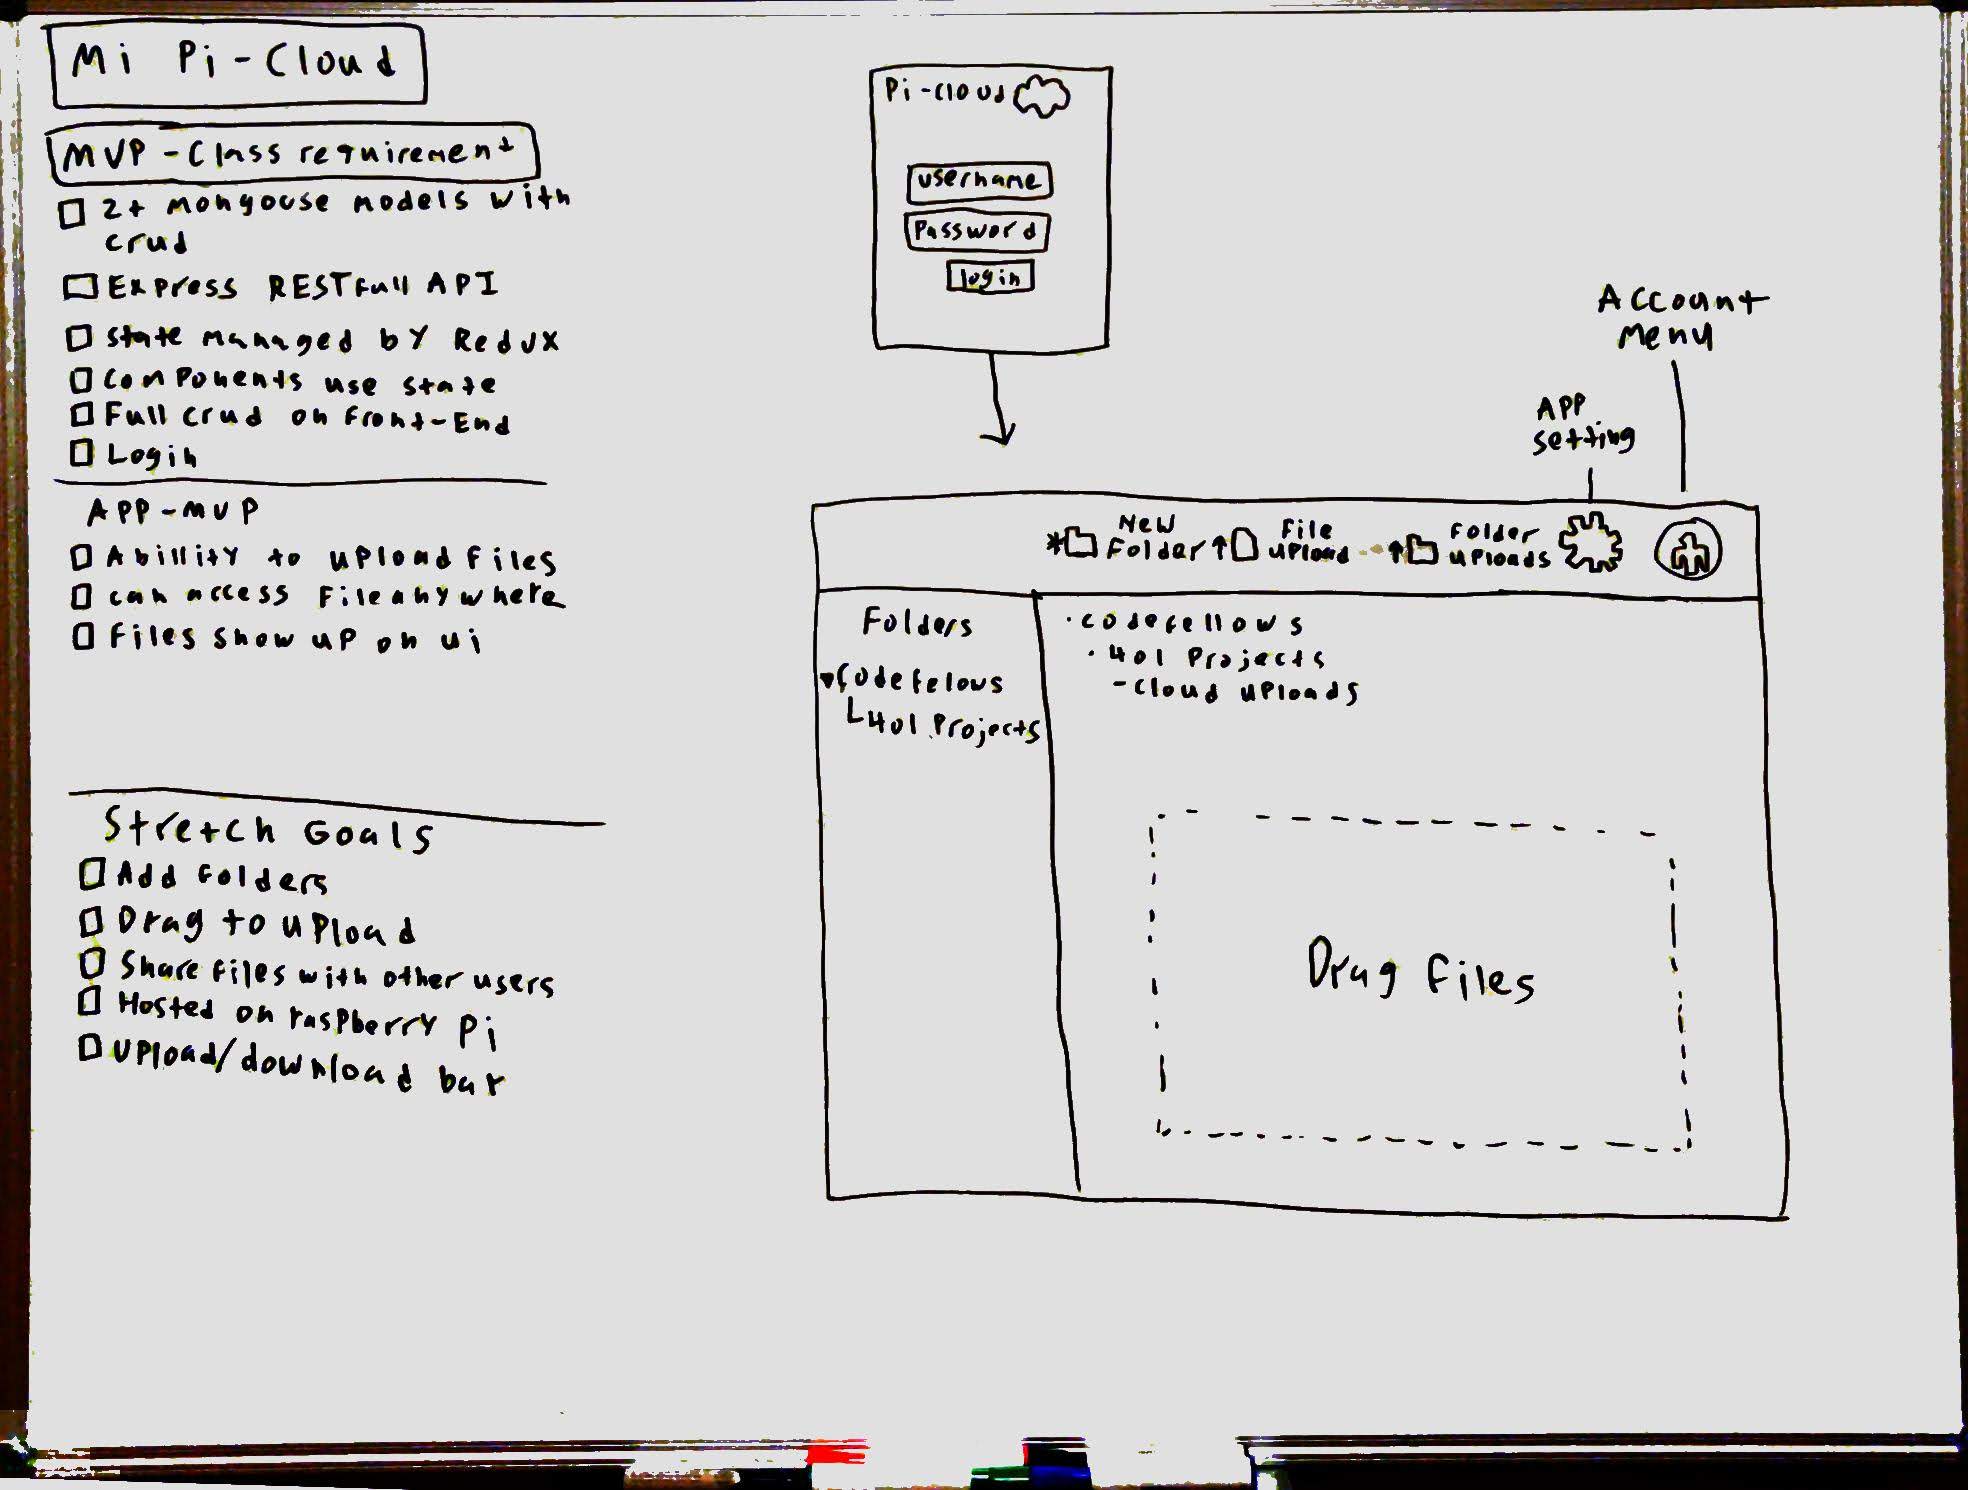 Mi Pi-Cloud
MVP - Class requirement
2+ mongouse models with
crud
Express RESTfull API
state managed by Redux
Components use state
Full crud on Front-End
Login
APP-MVP
Abillity to upload files
can access File anywhere
Files show up on ui
Stretch Goals
Add Folders
Drag to upload
Share files with other users
Hosted on raspberry Pi
Upload/download bar
Pi-cloud
username
Password
login
Account
menu
APP
setting
* New
Folder
File
upload
Folder
uploads
Folders
Codefelows
401 Projects
· codefellows
· 401 Projects
- cloud uploads
Drag files